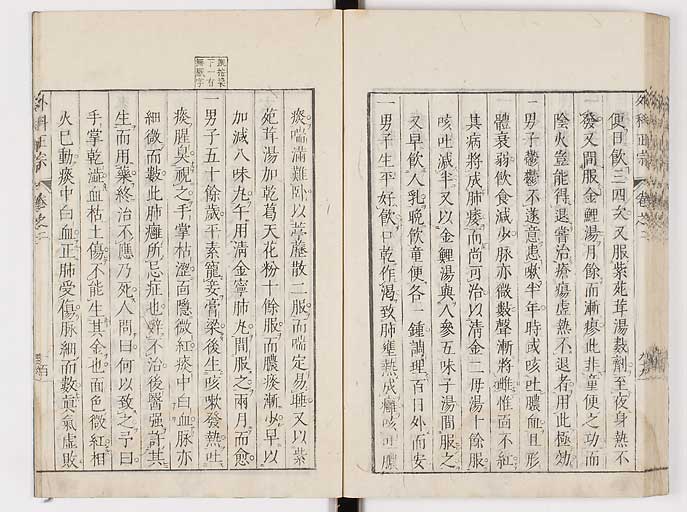 便日飲三四次又服紫菀茸湯數劑至夜身熱不
發又間服金鯉湯月餘而漸瘳此非童便之功而
陰火豈能得退嘗治瘡瘍虛熱不退者用此極効
一男子鬱鬱不遂意患嗽半年時或咳吐膿血且形
體衰弱飲食減少脉亦微數聲漸將雌惟面不紅
其病將成肺痿而尚可治以清金二母湯十餘服
咳吐減半又以金鯉湯與人參五味子湯間服之
又早飲人乳晚飲童便各一鍾調理百日外而安
一男子生平好飲口乾作渴致肺壅熱成癰咳吐膿
外科正宗 卷之二
痰喘滿難臥以葶藶散二服而喘定易睡又以紫
菀茸湯加乾葛天花粉十餘服而膿痰漸少早以
加減八味丸午用清金寧肺丸間服之兩月而愈
一男子五十餘歲平素寵妾膏粱後生咳嗽發熱吐
痰腥臭視之手掌枯澀面隱微紅痰中白血脉亦
細微而數此肺癰所忌症也辭不治後醫強許其
生而用藥終治不應乃死人問曰何以致之予曰
手掌乾澁血枯土傷不能生其金也面色微紅相
火巳動痰中白血正肺受傷脉細而數眞氣虛敗
外科正宗 卷之二